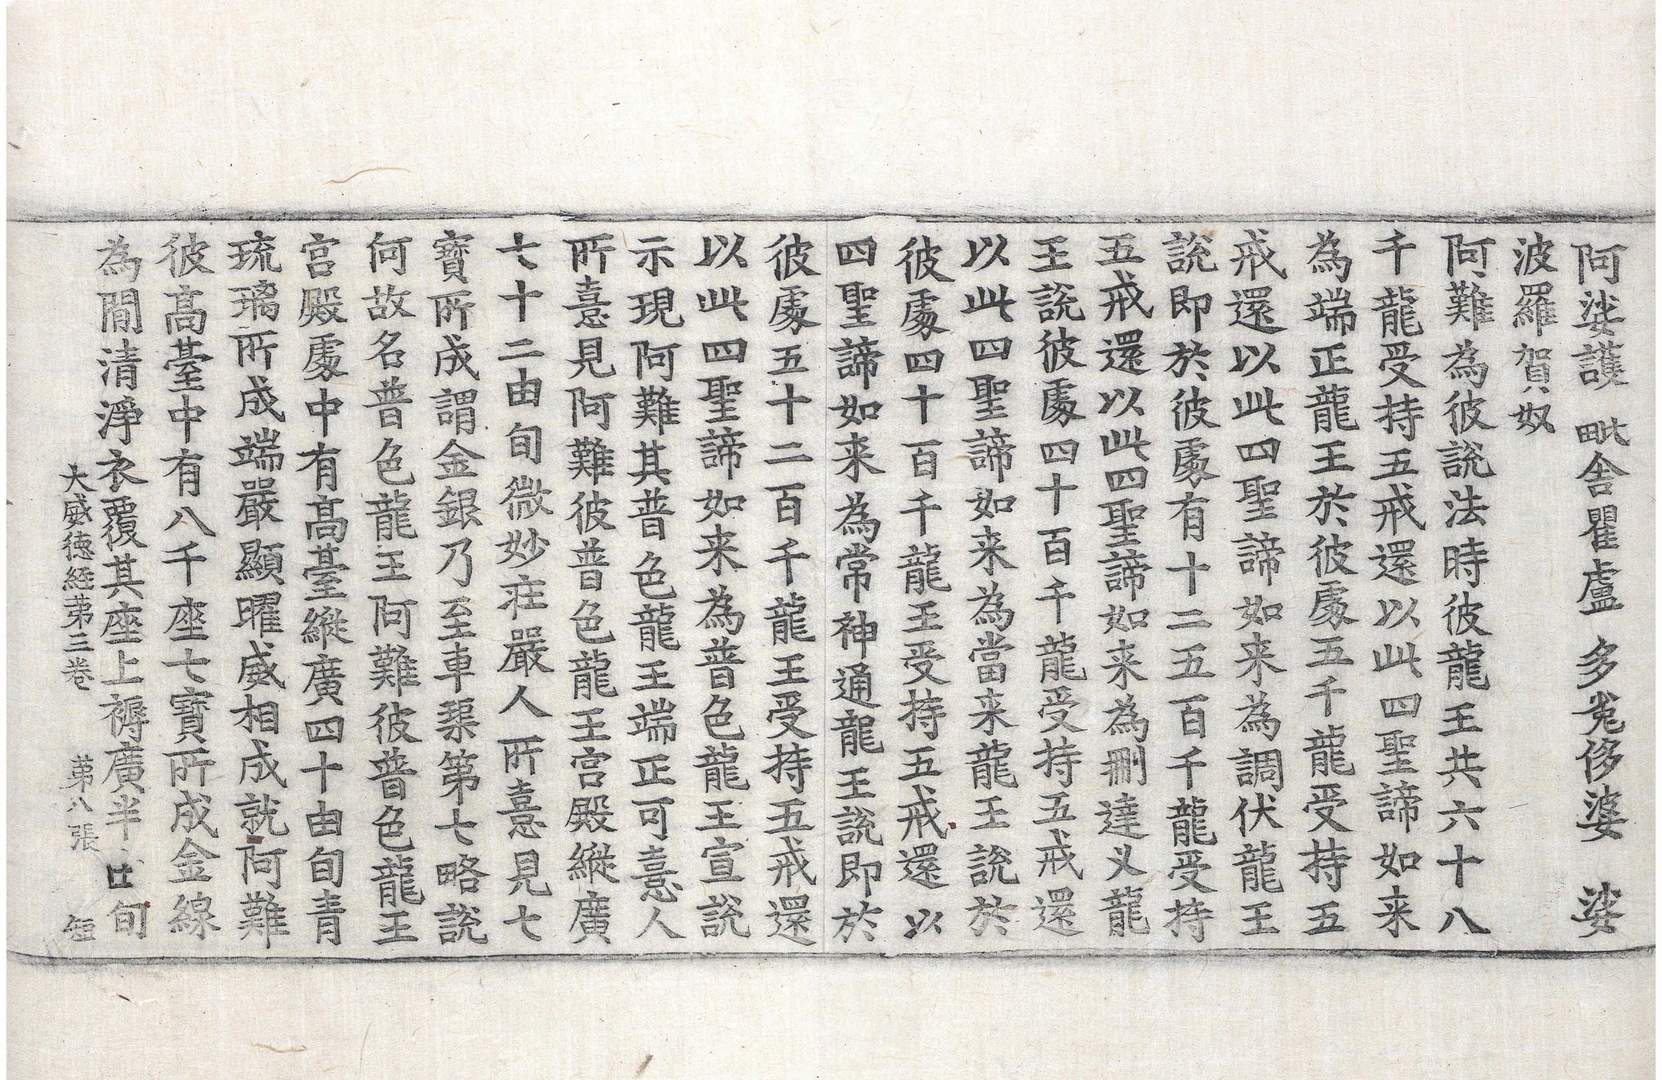 阿娑護 毗舍瞿盧 多㝹侈婆 娑
波羅賀奴
阿難為彼說法時彼龍王共六十八
千龍受持五戒還以此四聖諦如来
為端正龍王於彼處五千龍受持五
戒還以此四聖諦如来為調伏龍王
說即於彼處有十二五百千龍受持
五戒還以此四聖諦如来為刪達义龍
王說彼處四十百千龍受持五戒還
以此四聖諦如来為當来龍王說於
彼處四十百千龍王受持五戒還以
四聖諦如来為常神通龍王說即於
彼處五十二百千龍王受持五戒還
以此四聖諦如来為普色龍王宣說
示現阿難其普色龍王端正可憙人
所憙見阿難彼普色龍王宮殿縱廣
七十二由旬微妙莊嚴人所憙見七
寶所成謂金銀乃至車磲第七略說
何故名普色龍王阿難彼普色龍王
宮殿處中有髙臺縱廣四十由旬青
琉璃所成端嚴顯曜威相成就阿難
彼髙臺中有八千座七寶所成金線
為閒清淨衣覆其座上褥廣半由旬
大威德経苐三卷 苐八張 短